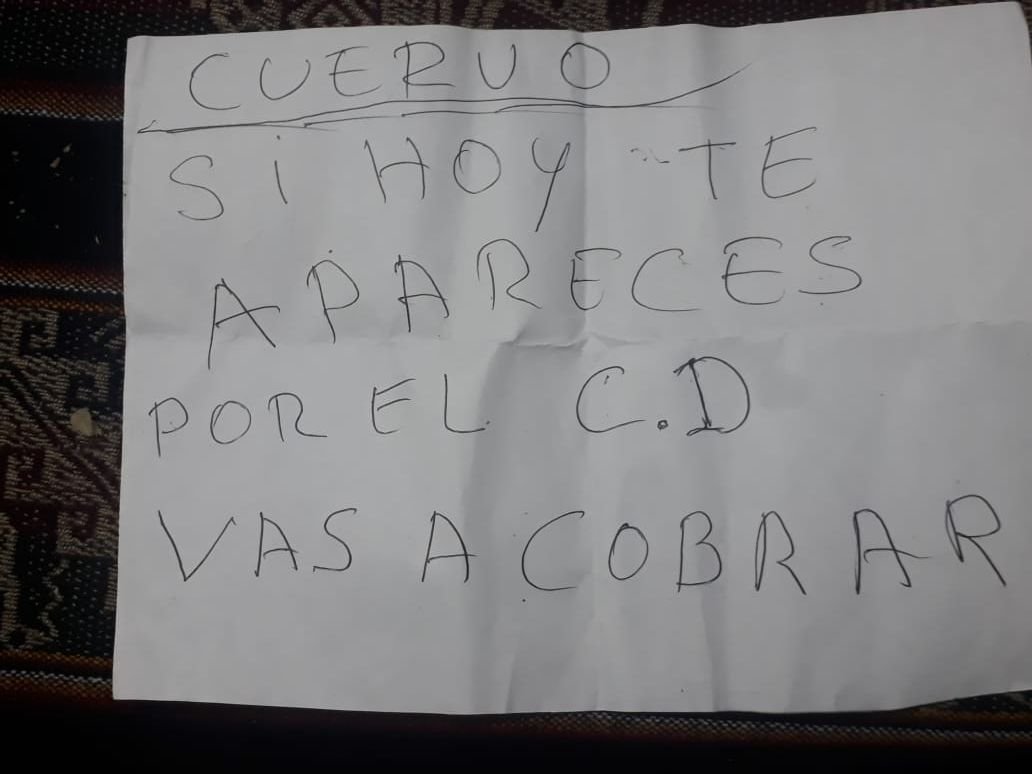 CUERVO
Si HOY TE
APARECES
POR EL C.D
VAS A COBRAR